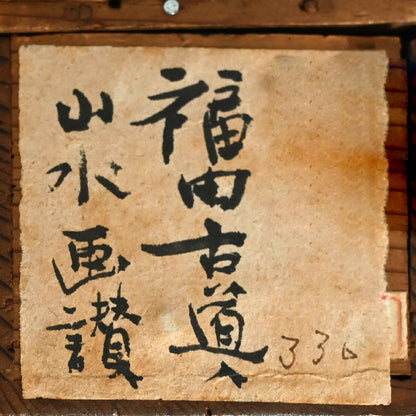 福田古道人
山水画讃
336